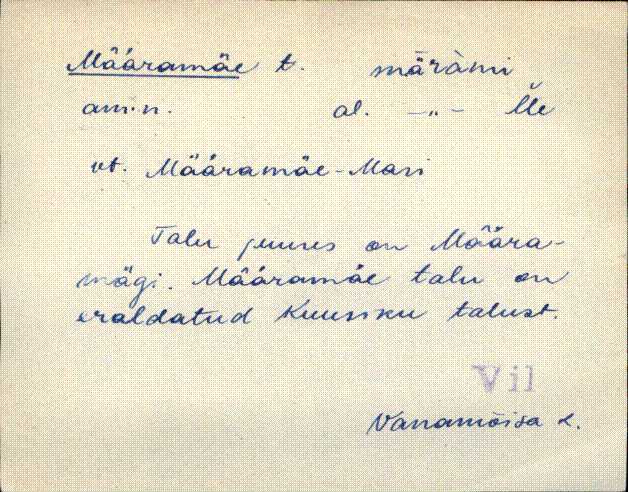 Määramäe t. märàmi
amin. al. —„— l̆le
vt. Määramäe-Mari
Talu juures on Määra-
mägi. Määramäe talu on
eraldatud Kuusiku talust.
Vil
Vanamõisa k.